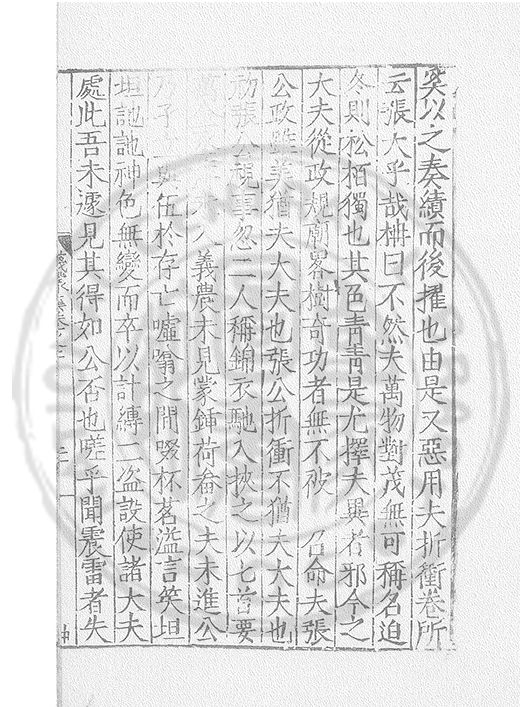 奚以之奏績而後擢也由是又惡用夫折衝卷所
云張大乎哉柟曰不然夫萬物對茂無可稱名迫
冬則松栢獨也其色青青是尤擇夫異者邪今之
大夫從政規廟畧樹奇功者無不被 召命夫張
公政雖美猶夫大夫也張公折衝不猶夫大夫也
初張公視事忽二人稱錦衣馳入挾之以匕首要
義農未見蒙鍾荷畚之夫未進公
與伍於存亡嘘翕之間啜杯茗溢言笑坦
坦訑訑神色無變而卒以計縛二盜設使諸大夫
處此吾未遽見其得如公否也嗟乎聞震雷者失